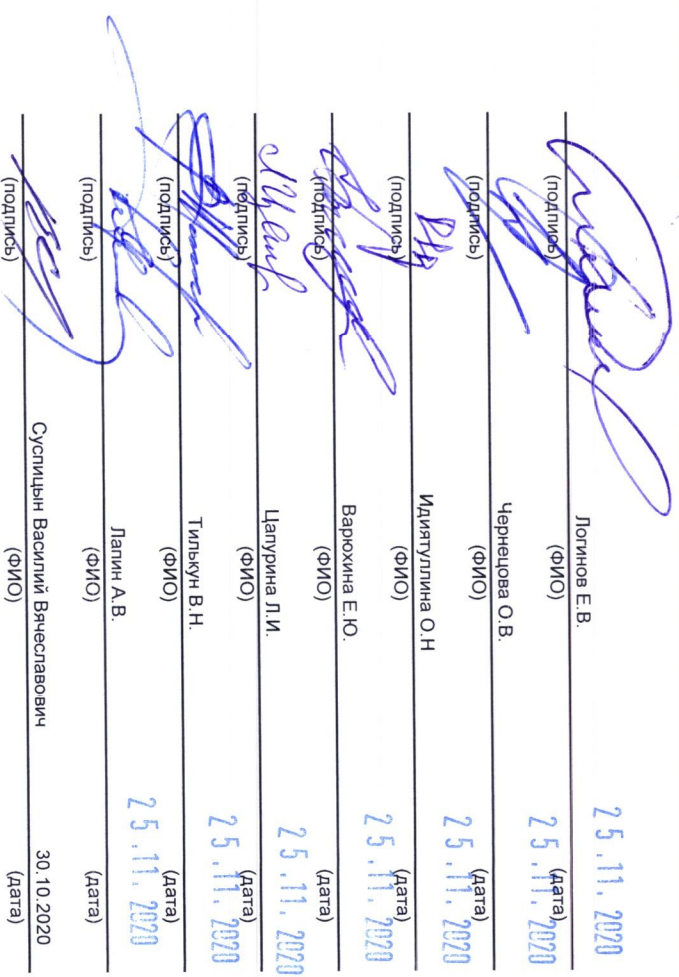 Логинов Е.В. 25.11.2020
(подпись) (ФИО) (дата)
Чернецова О.В. 25.11.2020
(подпись) (ФИО) (дата)
Идиятуллина О.Н 25.11.2020
(подпись) (ФИО) (дата)
Варюхина Е.Ю. 25.11.2020
(подпись) (ФИО) (дата)
Цапурина Л.И. 25.11.2020
(подпись) (ФИО) (дата)
Тилькун В.Н. 25.11.2020
(подпись) (ФИО) (дата)
Лапин А.В. 25.11.2020
(подпись) (ФИО) (дата)
Суспицын Василий Вячеславович 30.10.2020
(подпись) (ФИО) (дата)